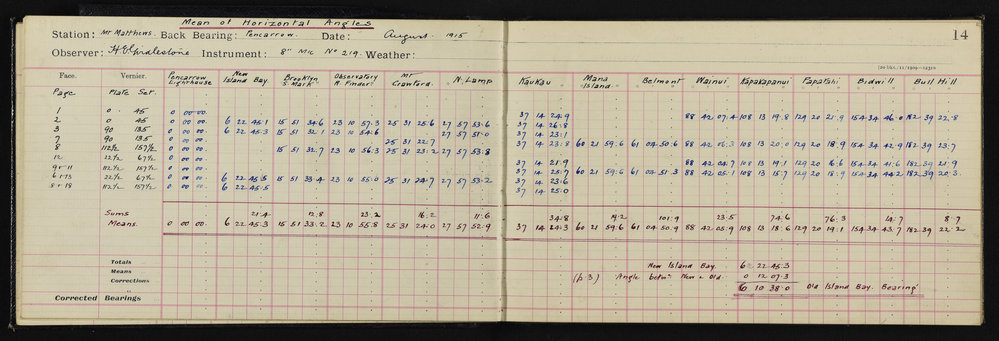 Mean of Horizontal Angles
Station: Mt Matthews. Back Bearing: Pencarrow. Date: August. 1915
14
Observer: H.E. Girdlestone Instrument: 8" Mic No 219. Weather:
Face. Vernier. Pencarrow Lighthouse New Island Bay. Brooklyn S. Mark Observatory H. Finder Mt Crawford. N. Lamp Kaukau Mana Island. Belmont Wainui Kapakapanui Papatahi Bidwill Bull Hill
Page Plate Set.
1 0 . 45 0 00 00. 37 14 24.9 88 42 07.4 108 13 19.8 129 20 21.9 154 34 46.0 182 39 22.8
2 0 45 0 00 00. 6 22 45.1 15 51 34.6 23 10 57.3 25 31 25.6 27 57 53.6 37 14 26.8
3 90 135 0 00 00 6 22 45.3 15 51 32.1 23 10 54.6 27 57 51.0 37 14 23.1
7 90 135 0 00 00 25 31 22.7 37 14 23.8 60 21 59.6 61 04 50.6 88 42 06.3 108 13 20.0 129 20 18.9 154 34 42.9 182 39 23.7
8 112½ 157½ 0 00 00 15 51 32.7 23 10 56.3 25 31 23.2 27 57 53.8
12 22½ 67½ 0 00 00 37 14 21.9 88 42 04.7 108 13 19.1 129 20 16.6 154 34 41.6 182 39 21.9
9 & 11 112½ 157½ 0 00 00 37 14 25.7 60 21 59.6 61 04 51.3 88 42 05.1 108 13 15.7 129 20 18.9 154 34 44.2 182 39 20.3
6 & 13 22½ 67½ 0 00 00 6 22 45.3 15 51 33.4 23 10 55.0 25 31 24.7 27 57 53.2 37 14 23.6
8 & 18 112½ 157½ 0 00 00 6 22 45.5 37 14 25.0
Sums 21.4 12.8 23.2 16.2 11.6 34.8 19.2 101.9 23.5 74.6 76.3 14.7 8.7
Means. 0 00 00. 6 22 45.3 15 51 33.2 23 10 55.8 25 31 24.0 27 57 52.9 37 14 24.3 60 21 59.6 61 04 50.9 88 42 05.9 108 13 18.6 129 20 19.1 154 34 43.7 182 39 22.2
Totals New Island Bay. 6 22 45.3
Means (p 3) Angle betwn New & Old. 0 12 07.3
Corrections 6 10 38.0 Old Island Bay. Bearing
Corrected Bearings